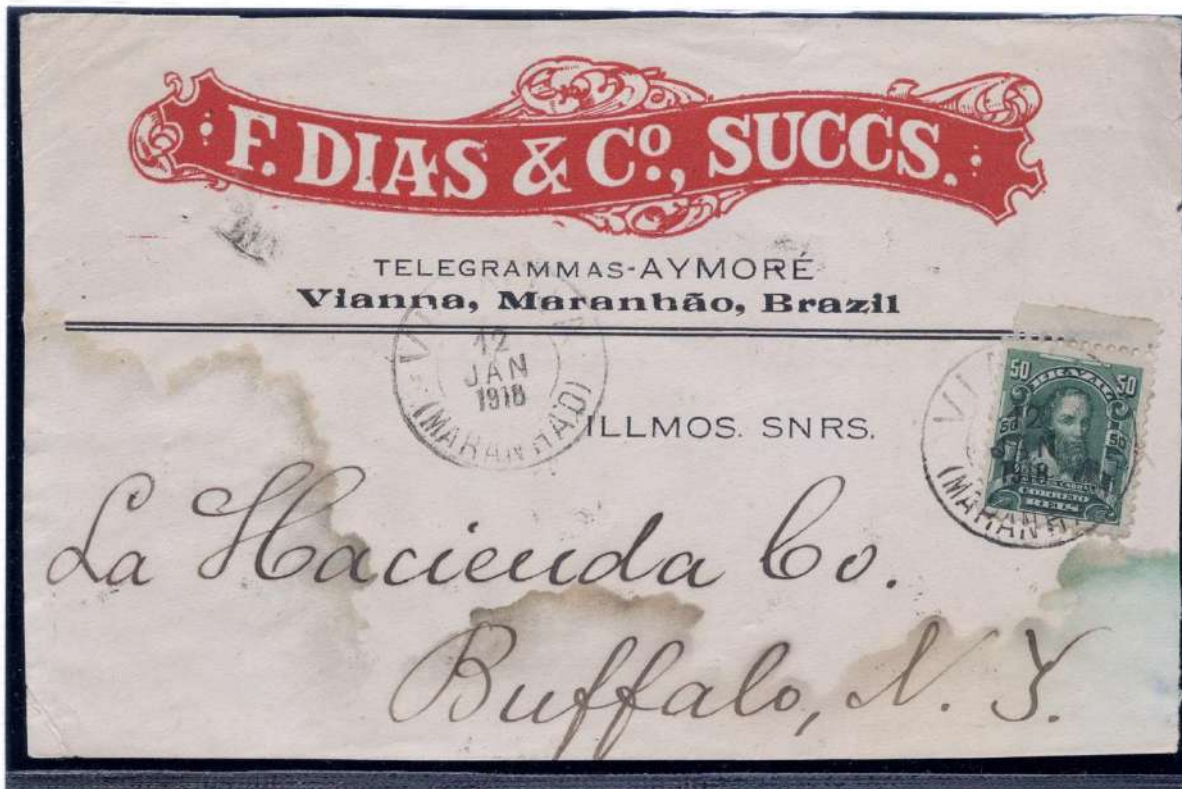 F. DIAS & Cº., SUCCS.
TELEGRAMMAS-AYMORÉ
Vianna, Maranhão, Brazil
12
JAN
1918
(MARANHÃO)
ILLMOS. SNRS.
50 BRAZIL 50
50 50
CORREIO
12
1918
(MARANH
La Hacienda Co.
Buffalo, N. Y.